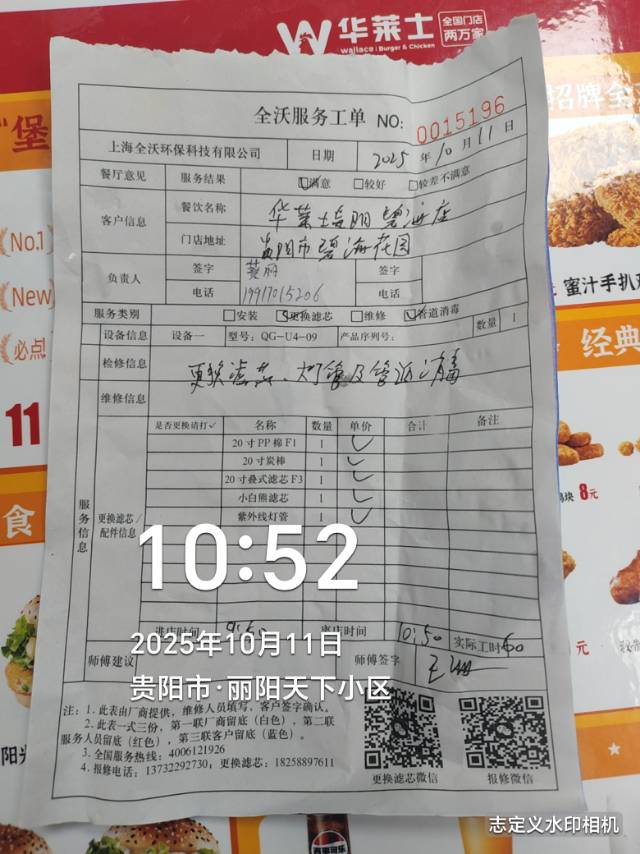 华莱士
wallace | Burger & Chicken
全国门店
两万家
招牌全
"堡
No.1
New
必点
11
食
蜜汁手扒鸡
经典
8元
元
全沃服务工单 NO: 0015196
上海全沃环保科技有限公司 日期 2025 年 10 月 11 日
餐厅意见 服务结果 ☑满意 □较好 □较差不满意
客户信息 餐饮名称 华莱士 碧海店
门店地址 贵阳市碧海花园
负责人 签字 签字
电话 19917015206 电话
服务类别 □安装 ☑更换滤芯 □维修 ☑管道消毒 数量 1
设备信息 设备一 型号: QG-U4-09 产品序列号:
检修信息 更换滤芯、灯管及管道消毒
维修信息
服务信息
更换滤芯/配件信息
是否更换请打✓ 名称 数量 单价 合计 备注
20寸PP棉F1 1 ✓
20寸炭棒 1 ✓
20寸叠式滤芯F3 1 ✓
小白熊滤芯 1 ✓
紫外线灯管 1 ✓
10:52
进店时间 9:50 离店时间 10:50 实际工时 60
2025年10月11日
师傅建议 师傅签字
贵阳市·丽阳天下小区
注: 1. 此表由厂商提供，维修人员填写，客户签字确认。
2. 此表一式三份，第一联厂商留底（白色），第二联
服务人员留底（红色），第三联客户留底（蓝色）。
3. 全国服务热线: 4006121926
4. 报修电话: 13732292730; 更换滤芯: 18258897611
更换滤芯微信 报修微信
志定义水印相机